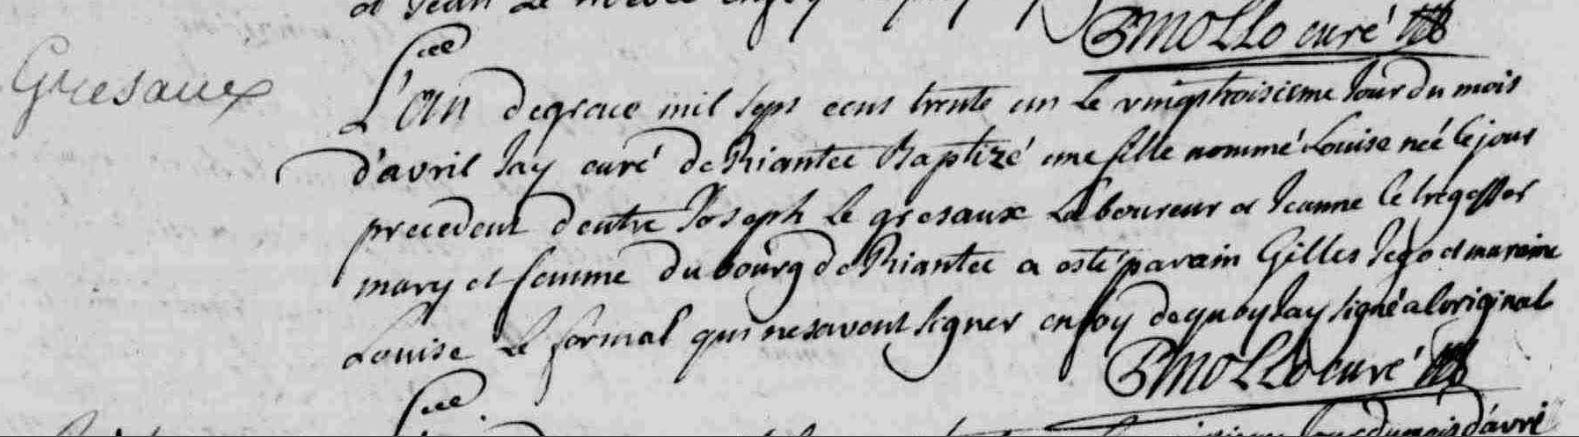 et Jean Le
PMOLLO curé
Gresaux
L'an degrace mil sept cent trente un Le vingttroisieme Jour du mois
d'avril Jay curé de Riantec Baptizé une fille nommé Louise neé le jour
precedent d'entre Joseph Le gresaux Laboureur et Jeanne le tregoffer
mary et femme du bourg de Riantec a esté parain Gilles Jego et maraine
Louise Le formal qui ne savent signer enfoy dequoy Jay signé a loriginal
PMOLLO curé